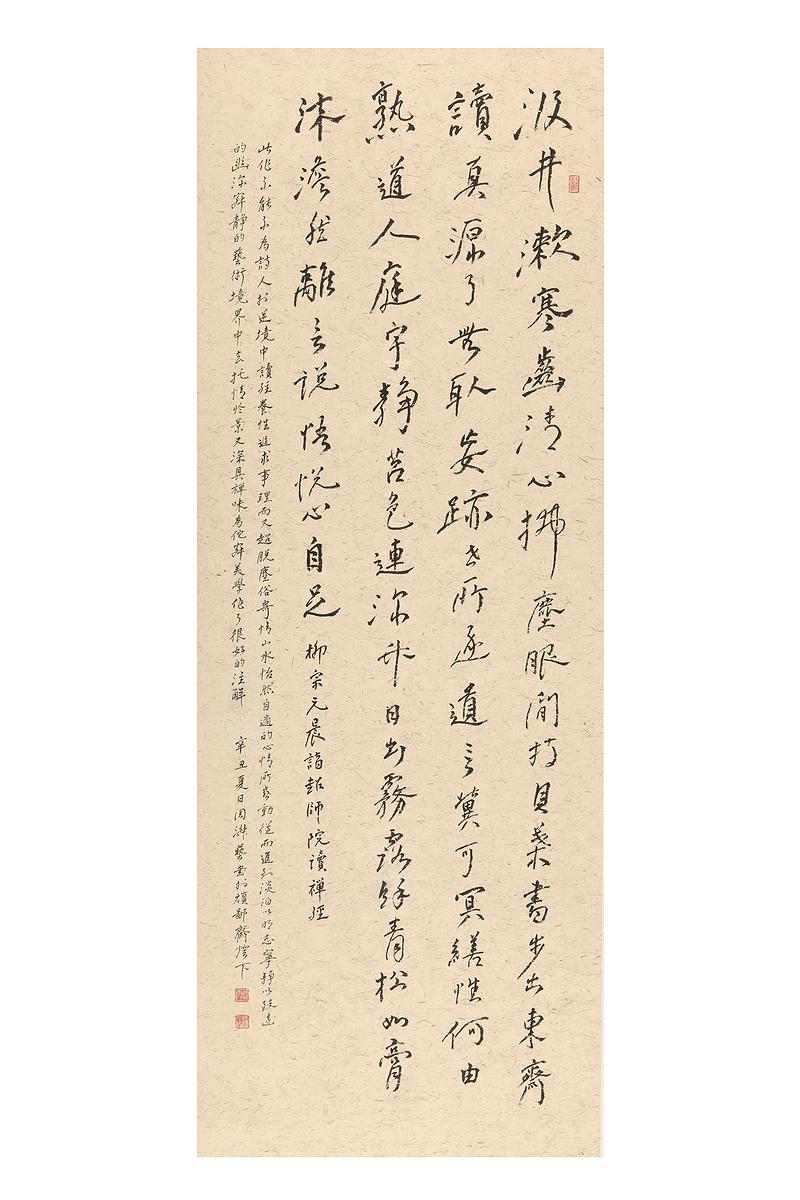 汲井漱寒齒清心拂塵服閒持貝葉書步出東齋
讀真源了無取妄跡世所逐遺言冀可冥繕性何由
熟道人庭宇靜苔色連深竹日出霧露餘青松如膏
沐澹然離言說悟悅心自足
柳宗元晨詣超師院讀禪經
此作不能不為詩人於逆境中讀經養性追求事理而又超脫塵俗寄情山水怡然自適的心情所感動從而進到淡泊以明志寧靜以致遠
的幽深寂靜的藝術境界中去托情於景又深具禪味為佗寂美學作了很好的注解
辛丑夏日周淋藝書於頑鄙齋燈下